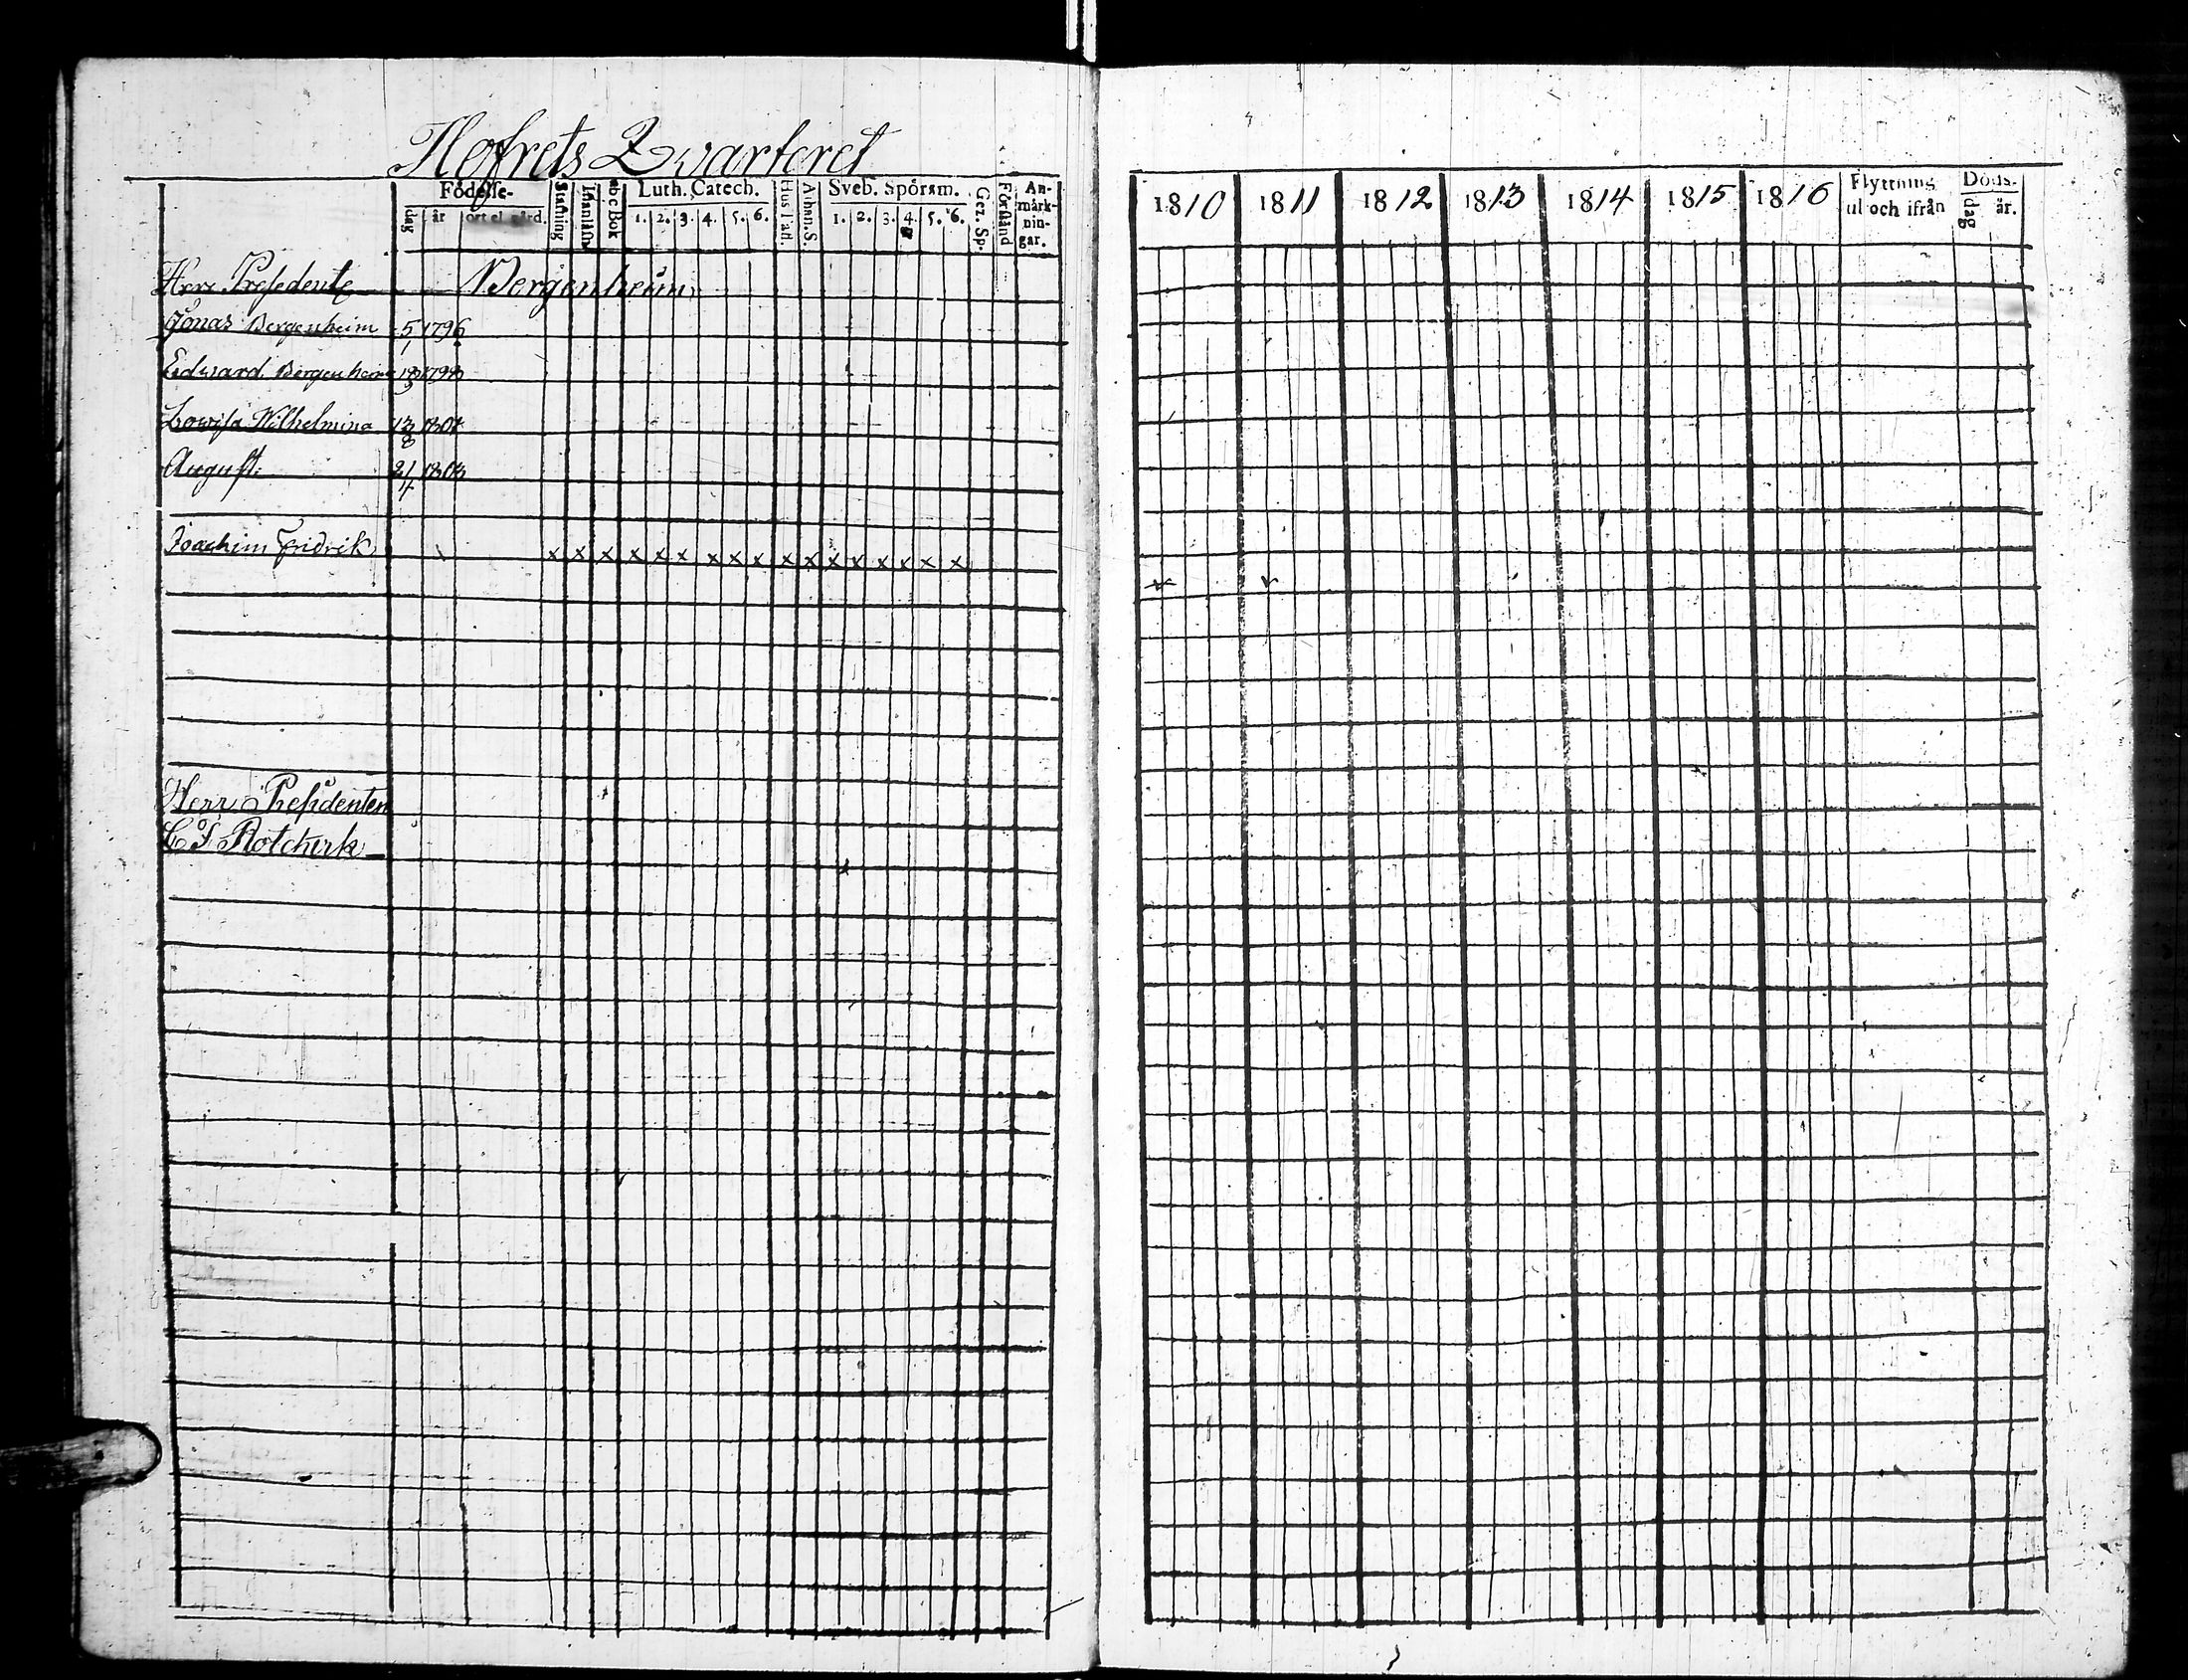 Hofrets Qvarteret
Födelse-
dag
år
ort el. gård.
Stafning
Innanläsn
abc Bok
Luth. Catech.
1. 2. 3. 4. 5. 6.
Hus Tafl.
Athan. S.
Sveb. Spörsm.
1. 2. 3. 4. 5. 6.
Gez. Sp.
Förstånd
An-
märk-
nin-
gar.
Herr Presedente Bergenheim
Jonas Bergenheim 5/1 1796
Edward Bergenheim 18/3 1798
Lowisa Wilhelmina 13/8
August
Joachim Fridrik x x x x x x x x x x x x x x x x x
Herr Presidenten
C F Rotcherk
1810 1811 1812 1813 1814 1815 1816
Flyttning
til och ifrån
Döds-
dag
år.